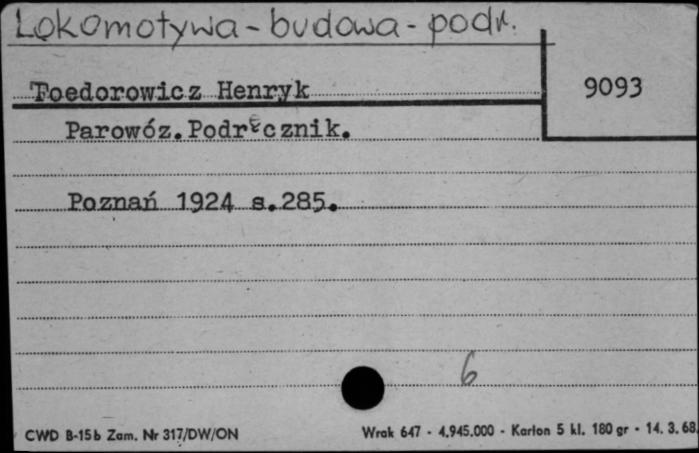 Lokomotywa - budowa - podr.
Toedorowicz Henryk
9093
Parowóz. Podręcznik.
Poznań 1924 s.285.
6
CWD B-15b Zam. Nr 317/DW/ON
Wrak 647 - 4.945.000 - Karton 5 kl. 180 gr - 14. 3. 68.